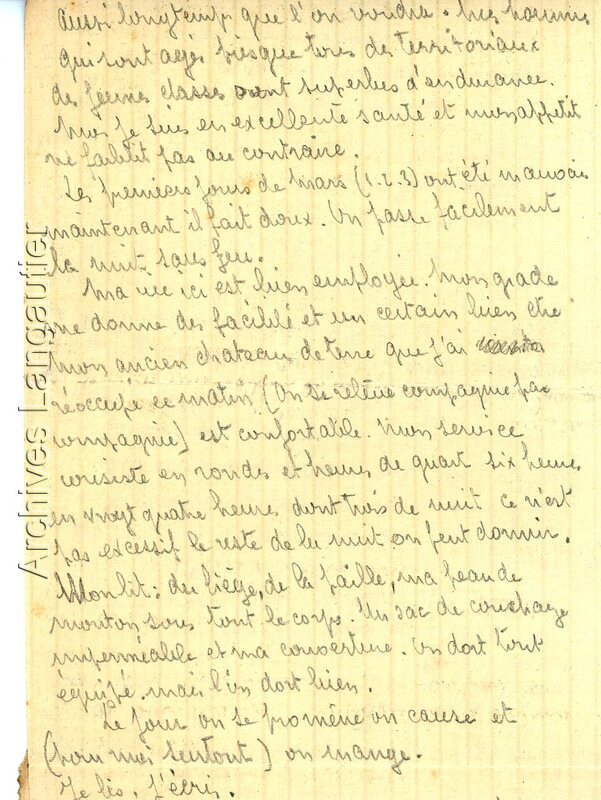 aussi longtemps que l'on voudra. Mes hommes
qui sont agés presque tous des territoriaux
des jeunes classes sont superbes d'endurance.
Moi je suis en excellente santé et mon appetit
ne faiblit pas au contraire.
Les premiers jours de Mars (1.2.3) ont été mauvais
maintenant il fait doux. On passe facilement
la nuit sans feu.
Ma vie ici est bien employée. Mon grade
me donne des facilité et un certain bien etre
Mon ancien chateau de terre que j'ai
réoccupé ce matin (On se relève compagnie par
compagnie) est confortable. Mon service
consiste en rondes et heures de quart six heures
en vingt quatre heures dont trois de nuit ce n'est
pas excessif le reste de la nuit on peut dormir.
Mon lit: du liège, de la paille, ma peau de
mouton sous tout le corps. Un sac de couchage
imperméable et ma couverture. On dort tout
équipé. mais l'on dort bien.
Le jour on se promène on cause et
(pour moi surtout) on mange.
Je lis. J'écris.
Archives Langautier